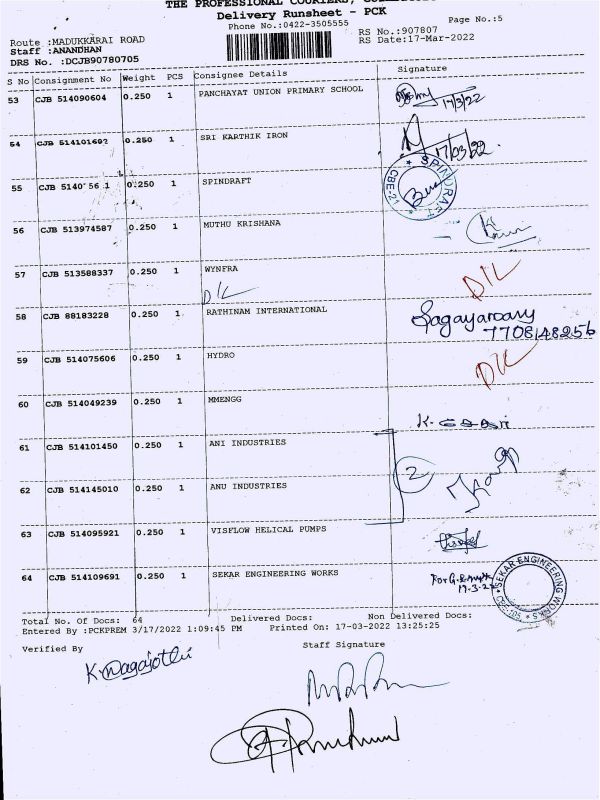 THE PROFESSIONAL COURIERS,
Delivery Runsheet - PCK
Phone No.:0422-3505555
Page No.:5
Route :MADUKKARAI ROAD
RS No.:907807
Staff :ANANDHAN
RS Date:17-Mar-2022
DRS No. :DCJB90780705
S No Consignment No Weight PCS Consignee Details Signature
53 CJB 514090604 0.250 1 PANCHAYAT UNION PRIMARY SCHOOL 17/3/22
54 CJB 514101692 0.250 1 SRI KARTHIK IRON 17/03/22.
55 CJB 0.250 1 SPINDRAFT SPINDRAFT CBE-21
56 CJB 513974587 0.250 1 MUTHU KRISHANA
57 CJB 513588337 0.250 1 WYNFRA D/L
D/L
58 CJB 88183228 0.250 1 RATHINAM INTERNATIONAL Sagayamary
7708148256
59 CJB 514075606 0.250 1 HYDRO D/L
60 CJB 514049239 0.250 1 MMENGG K.
61 CJB 514101450 0.250 1 ANI INDUSTRIES
2
62 CJB 514145010 0.250 1 ANU INDUSTRIES
63 CJB 514095921 0.250 1 VISFLOW HELICAL PUMPS
64 CJB 514109691 0.250 1 SEKAR ENGINEERING WORKS For SEKAR ENGINEERING WORKS
Total No. Of Docs: 64 Delivered Docs: Non Delivered Docs:
Entered By :PCKPREM 3/17/2022 1:09:45 PM Printed On: 17-03-2022 13:25:25
Verified By Staff Signature
K. Nagajothi